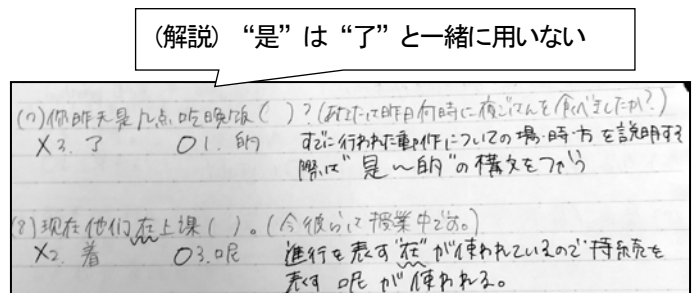 (解説) “是” は “了” と一緒に用いない
(7)你昨天是几点吃晚饭( )?(あなたは昨日何時に夜ごはんを食べましたか?)
×3. 了 ○1. 的 すでに行われた動作についての場・時・方を説明する
際は“是〜的”の構文をつかう
(8)现在他们在上课( )。(今彼らは授業中です。)
×2. 着 ○3.呢 進行を表す“在”が使われているので持続を
表す 呢 が使われる。